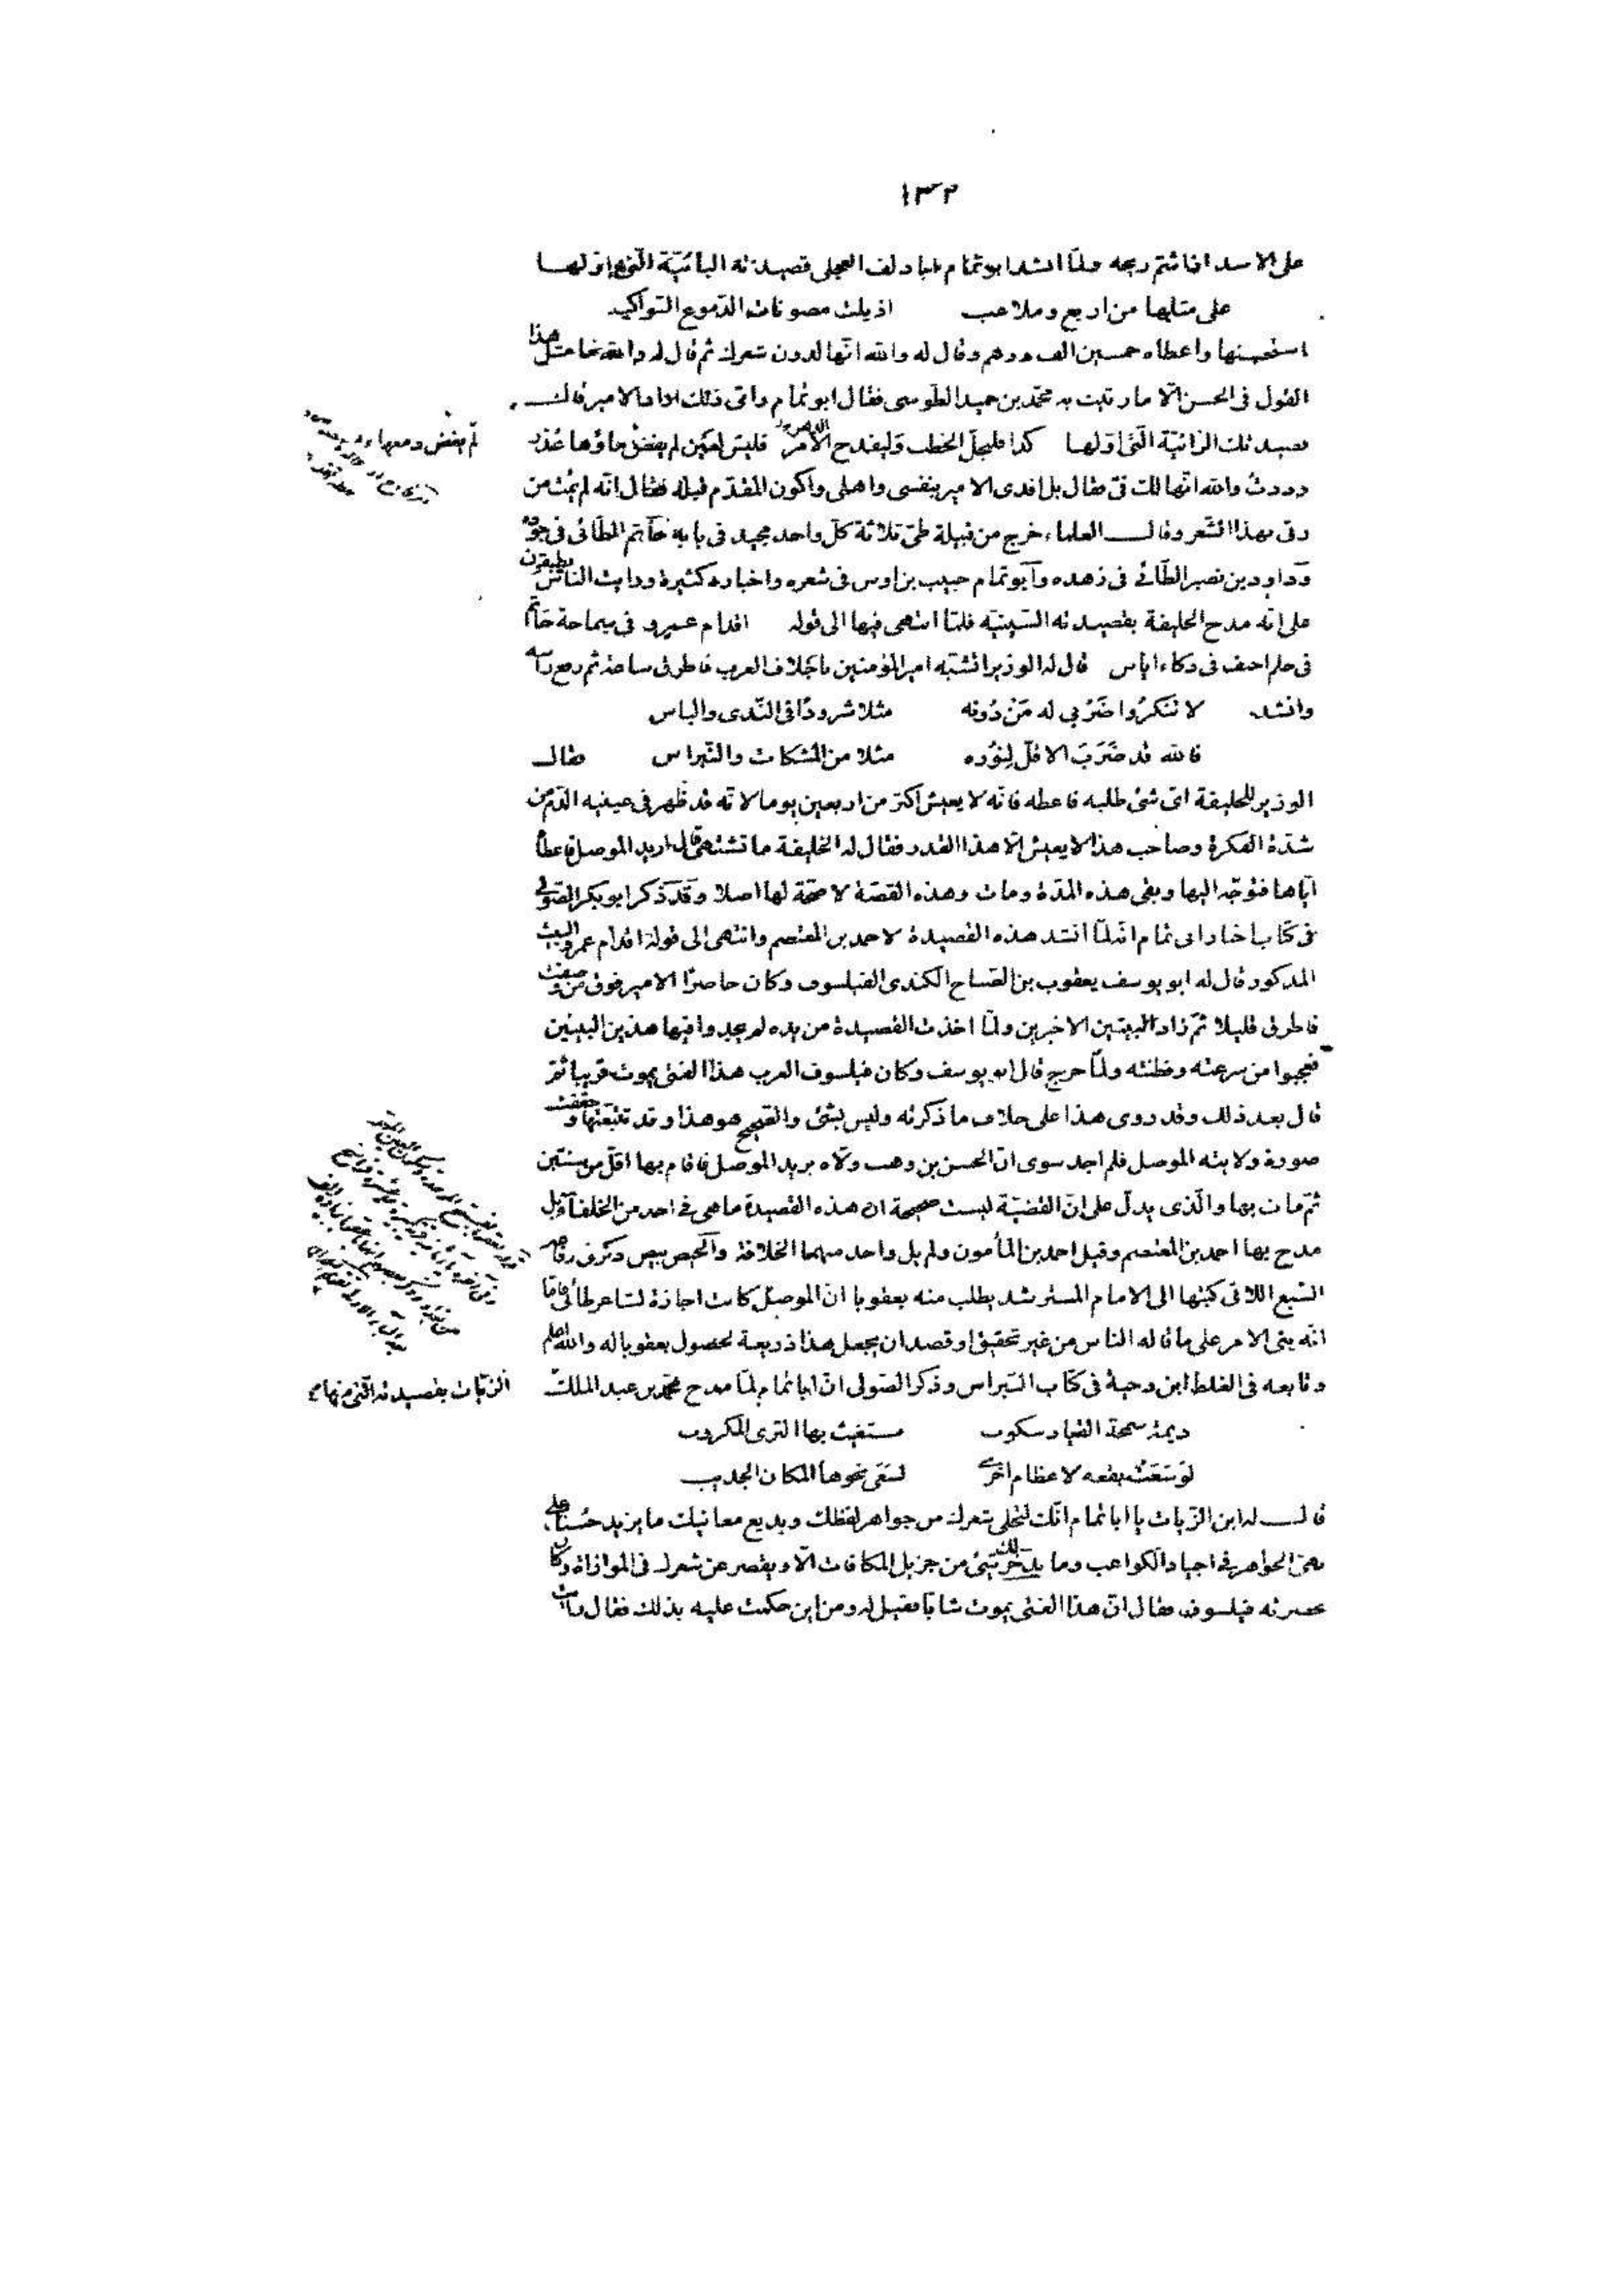 ١٣٢
على الاسد اذا شتم ريحه ولمّا انشد ابو تمام ابا دلف العجلى قصيدته البائيّة الّتى اوّلها
على مثلها من اربع وملاعب اذيلت مصونات الدّموع السّواكب
استحسنها واعطاه خمسين الف درهم وقال له والله انّها لدون شعرك ثم قال له والله ما مثل هذا
القول فى الحسن الّا ما رثيت به محمّد بن حميد الطّوسى فقال ابو تمّام واىّ ذلك اراد الامير قال
قصيدتك الرّائيّة الّتى اوّلها كذا فليجلّ الخطب وليفدح الأمر فليس لعين لم يفض ماؤها عذر
لم يفض دمعها
وددت والله انّها لك فىّ فقال بل افدى الامير بنفسى واهلى واكون المقدّم قبله فقال انّه لم يمت من
رثى بهذا الشّعر وقال العلماء خرج من قبيلة طىّ ثلاثة كلّ واحد مجيد فى بابه حاتم الطّائى فى جوده
وداود بن نصير الطّائى فى زهده وابو تمام حبيب بن اوس فى شعره واخباره كثيرة ورايت النّاس يطبقون
على انّه مدح الخليفة بقصيدته السّينيّه فلمّا انتهى فيها الى قوله اقدام عمرو فى سماحة حاتم
فى حلم احنف فى ذكاء اياس قال له الوزير اتشبّه امير المؤمنين باجلاف العرب فاطرق ساعة ثم رفع راسه
وانشد لا تنكروا ضربى له من دونه مثلا شرودًا فى النّدى والباس
فالله قد ضرب الاقلّ لنوره مثلا من المشكات والنّبراس فقال
الوزير للخليفة اىّ شئ طلبه فاعطه فانّه لا يعيش اكثر من اربعين يوما لانّه قد ظهر فى عينيه الدّم من
شدّة الفكرة وصاحب هذا لا يعيش الّا هذا القدر فقال له الخليفة ما تشتهى قال اريد الموصل فاعطاه
ايّاها فتوجّه اليها وبقى هذه المدّة ومات وهذه القصّة لا صحّة لها اصلا وقد ذكر ابو بكر الصّولى
فى كتاب اخبار ابى تمام انّه لمّا انشد هذه القصيدة لاحمد بن المعتصم وانتهى الى قوله اقدام عمرو البيت
المذكور قال له ابو يوسف يعقوب بن الصباح الكندى الفيلسوف وكان حاضرًا الامير فوق من وصفت
فاطرق قليلا ثمّ زاد البيتين الاخيرين ولمّا اخذت القصيدة من يده لم يجدوا فيها هذين البيتين
فعجبوا من سرعته وفطنته ولمّا خرج قال ابو يوسف وكان فيلسوف العرب هذا الفتى يموت قريبا ثم
قال بعد ذلك وقد روى هذا على خلاف ما ذكرته وليس بشئ والصّحيح هو هذا وقد تتبّعتها وحقّقت
صورة ولايته الموصل فلم اجد سوى انّ الحسن بن وهب ولّاه بريد الموصل فاقام بها اقلّ من سنتين
ثمّ مات بها والّذى يدلّ على انّ القضيّة ليست صحيحة ان هذه القصيدة ما هى فى احد من الخلفآء بل
مدح بها احمد بن المعتصم وقيل احمد بن المأمون ولم يل واحد منهما الخلافة والحيص بيص ذكر فى رقاعه
السّبع اللاتى كتبها الى الامام المسترشد يطلب منه بعقوبا انّ الموصل كانت اجازة لشاعر طائى فامّا
انّه بنى الامر على ما قاله النّاس من غير تحقيق او قصد ان يجعل هذا ذريعة لحصول بعقوبا له والله اعلم
وتابعه فى الغلط ابن دحية فى كتاب النّبراس وذكر الصّولى انّ ابا تمام لمّا مدح محمّد بن عبد الملك
الزيّات بقصيدته الّتى منها
ديمة سمحة القياد سكوب مستغيث بها الثرى المكروب
لو سعت بقعه لاعظام اخرى لسعى نحوها المكان الجديب
قال له ابن الزّيات يا ابا تمام انّك لتحلى شعرك من جواهر لفظك وبديع معانيك ما يزيد حسنا على
بهى الجواهر فى اجياد الكواعب وما يدّخر لك شئ من جزيل المكافات الّا ويقصر عن شعرك فى الموازاة وكان
بحضرته فيلسوف فقال انّ هذا الفتى يموت شابّا فقيل له ومن اين حكمت عليه بذلك فقال رأيت